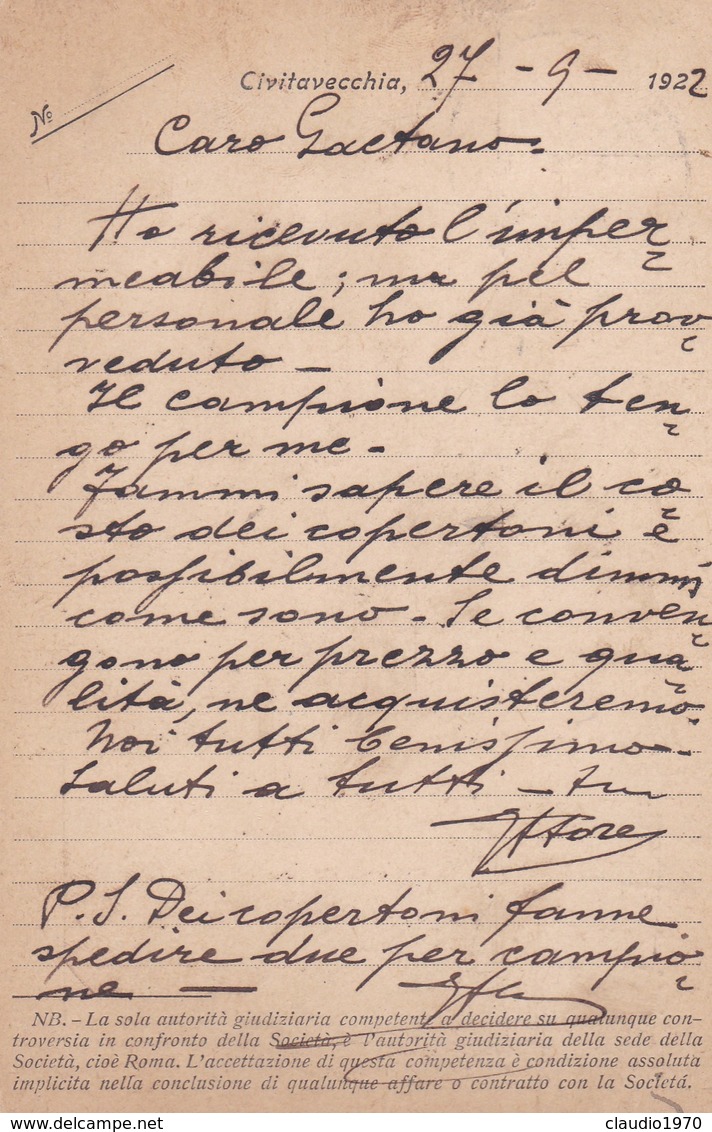 Civitavecchia, 27 - 9 - 1922
Nº
Caro Gaetano.
Ho ricevuto l'imper
meabile; ma pel
personale ho già prov
veduto -
Il campione lo ten
go per me.
Fammi sapere il co
sto dei copertoni e
possibilmente dimmi
come sono. Se conven
gono per prezzo e qua
lità, ne acquisteremo.
Noi tutti benissimo.
Saluti a tutti - tuo
Ettore
P.S. Dei copertoni fanne
spedire due per campio
ne -
NB. - La sola autorità giudiziaria competente a decidere su qualunque con-
troversia in confronto della Società, è l'autorità giudiziaria della sede della
Società, cioè Roma. L'accettazione di questa competenza è condizione assoluta
implicita nella conclusione di qualunque affare o contratto con la Società.
claudio1970